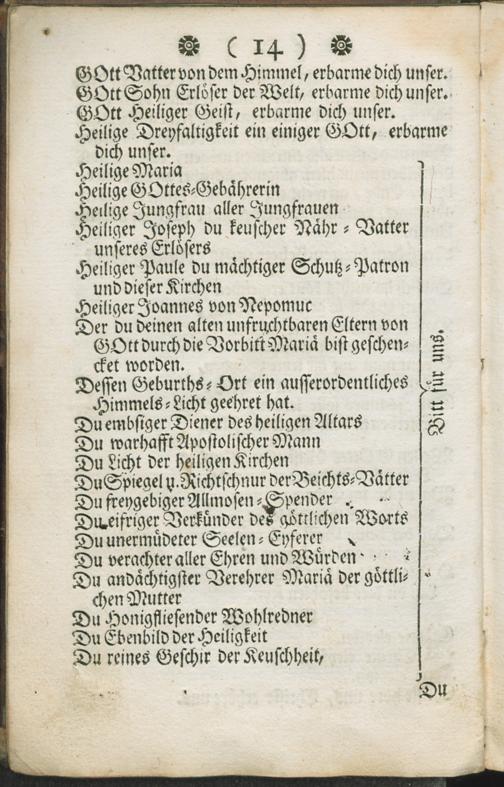 ( 14 )
GOtt Vatter von dem Himmel, erbarme dich unser.
GOtt Sohn Erlöser der Welt, erbarme dich unser.
GOtt Heiliger Geist, erbarme dich unser.
Heilige Dreyfaltigkeit ein einiger GOtt, erbarme
dich unser.
Heilige Maria
Heilige GOttes-Gebährerin
Heilige Jungfrau aller Jungfrauen
Heiliger Joseph du keuscher Nähr-Vatter
unseres Erlösers
Heiliger Paule du mächtiger Schutz-Patron
und dieser Kirchen
Heiliger Joannes von Nepomuc
Der du deinen alten unfruchtbaren Eltern von
GOtt durch die Vorbitt Mariä bist geschen-
cket worden.
Dessen Geburths-Ort ein ausserordentliches
Himmels-Licht geehret hat.
Du embsiger Diener des heiligen Altars
Du warhafft Apostolischer Mann
Du Licht der heiligen Kirchen
Du Spiegel u. Richtschnur der Beichts-Vätter
Du freygebiger Allmosen-Spender
Du eifriger Verkünder des göttlichen Worts
Du unermüdeter Seelen-Eyferer
Du verachter aller Ehren und Würden
Du andächtigster Verehrer Mariä der göttli-
chen Mutter
Du Honigfliesender Wohlredner
Du Ebenbild der Heiligkeit
Du reines Geschir der Keuschheit,
Bitt für uns.
Du